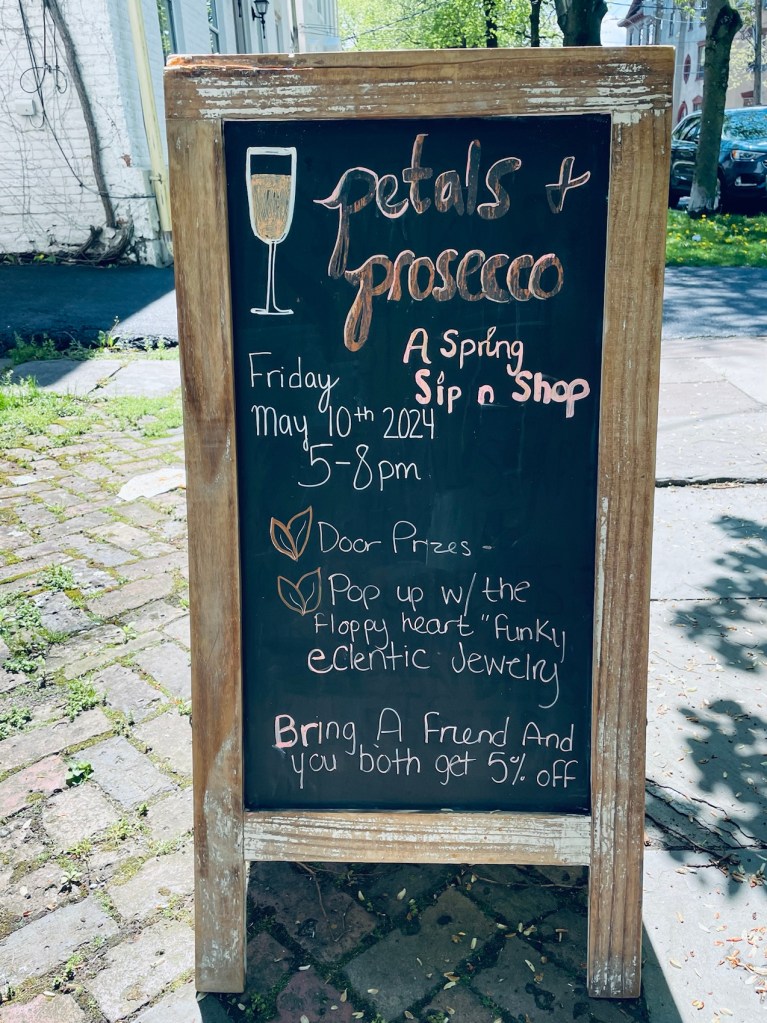 petals +
prosecco
A Spring
Sip n Shop
Friday
May 10th 2024
5-8pm
Door Prizes -
Pop up w/ the
Floppy heart "funky
eclentic Jewelry
Bring A Friend And
you both get 5% off